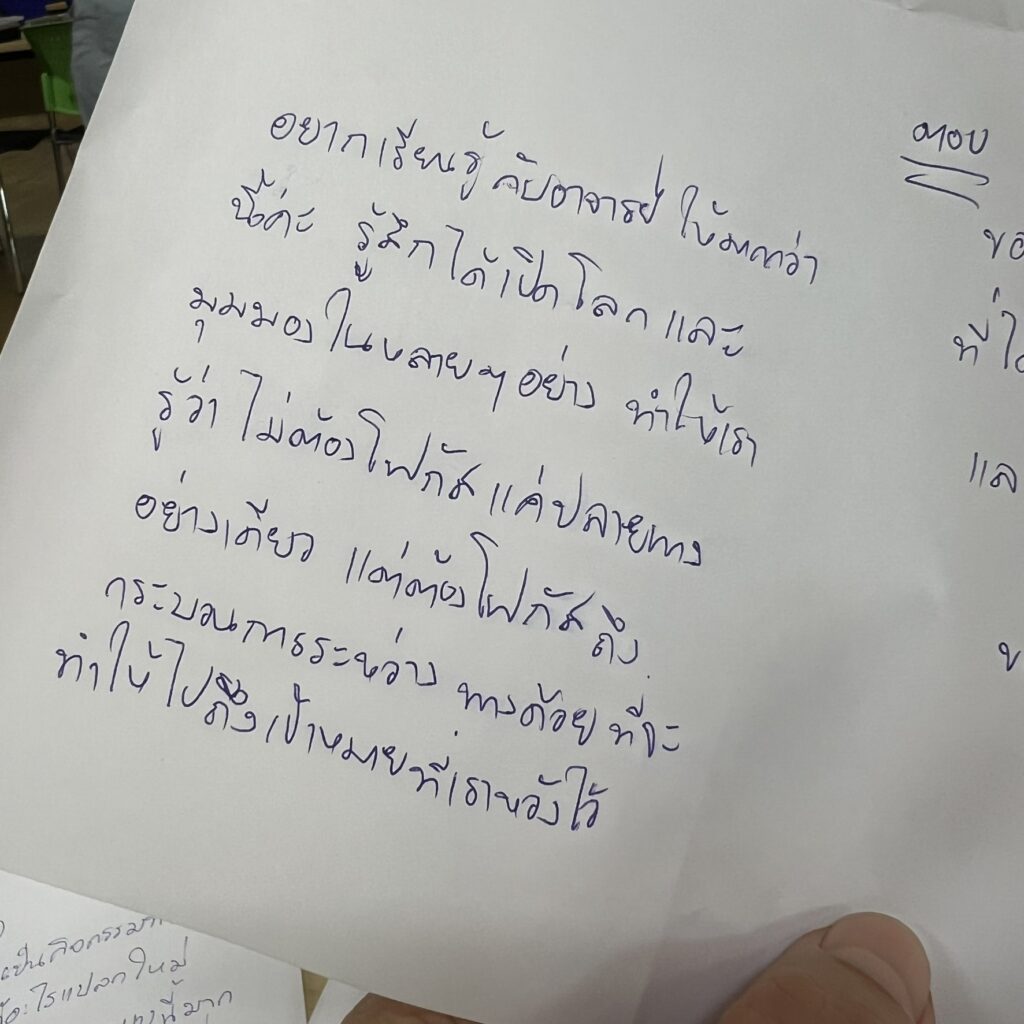 อยากเรียนรู้กับอาจารย์ให้มากกว่า
นี้ค่ะ รู้สึกได้เปิดโลกและ
มุมมองในหลายๆอย่าง ทำให้เรา
รู้ว่า ไม่ต้องโฟกัสแค่ปลายทาง
อย่างเดียว แต่ต้องโฟกัสถึง
กระบวนการระหว่างทางด้วยที่จะ
ทำให้ไปถึงเป้าหมายที่เราหวังไว้
ตอบ
ที่
เป็นกิจกรรม
อะไรแปลกใหม่
นี้มาก